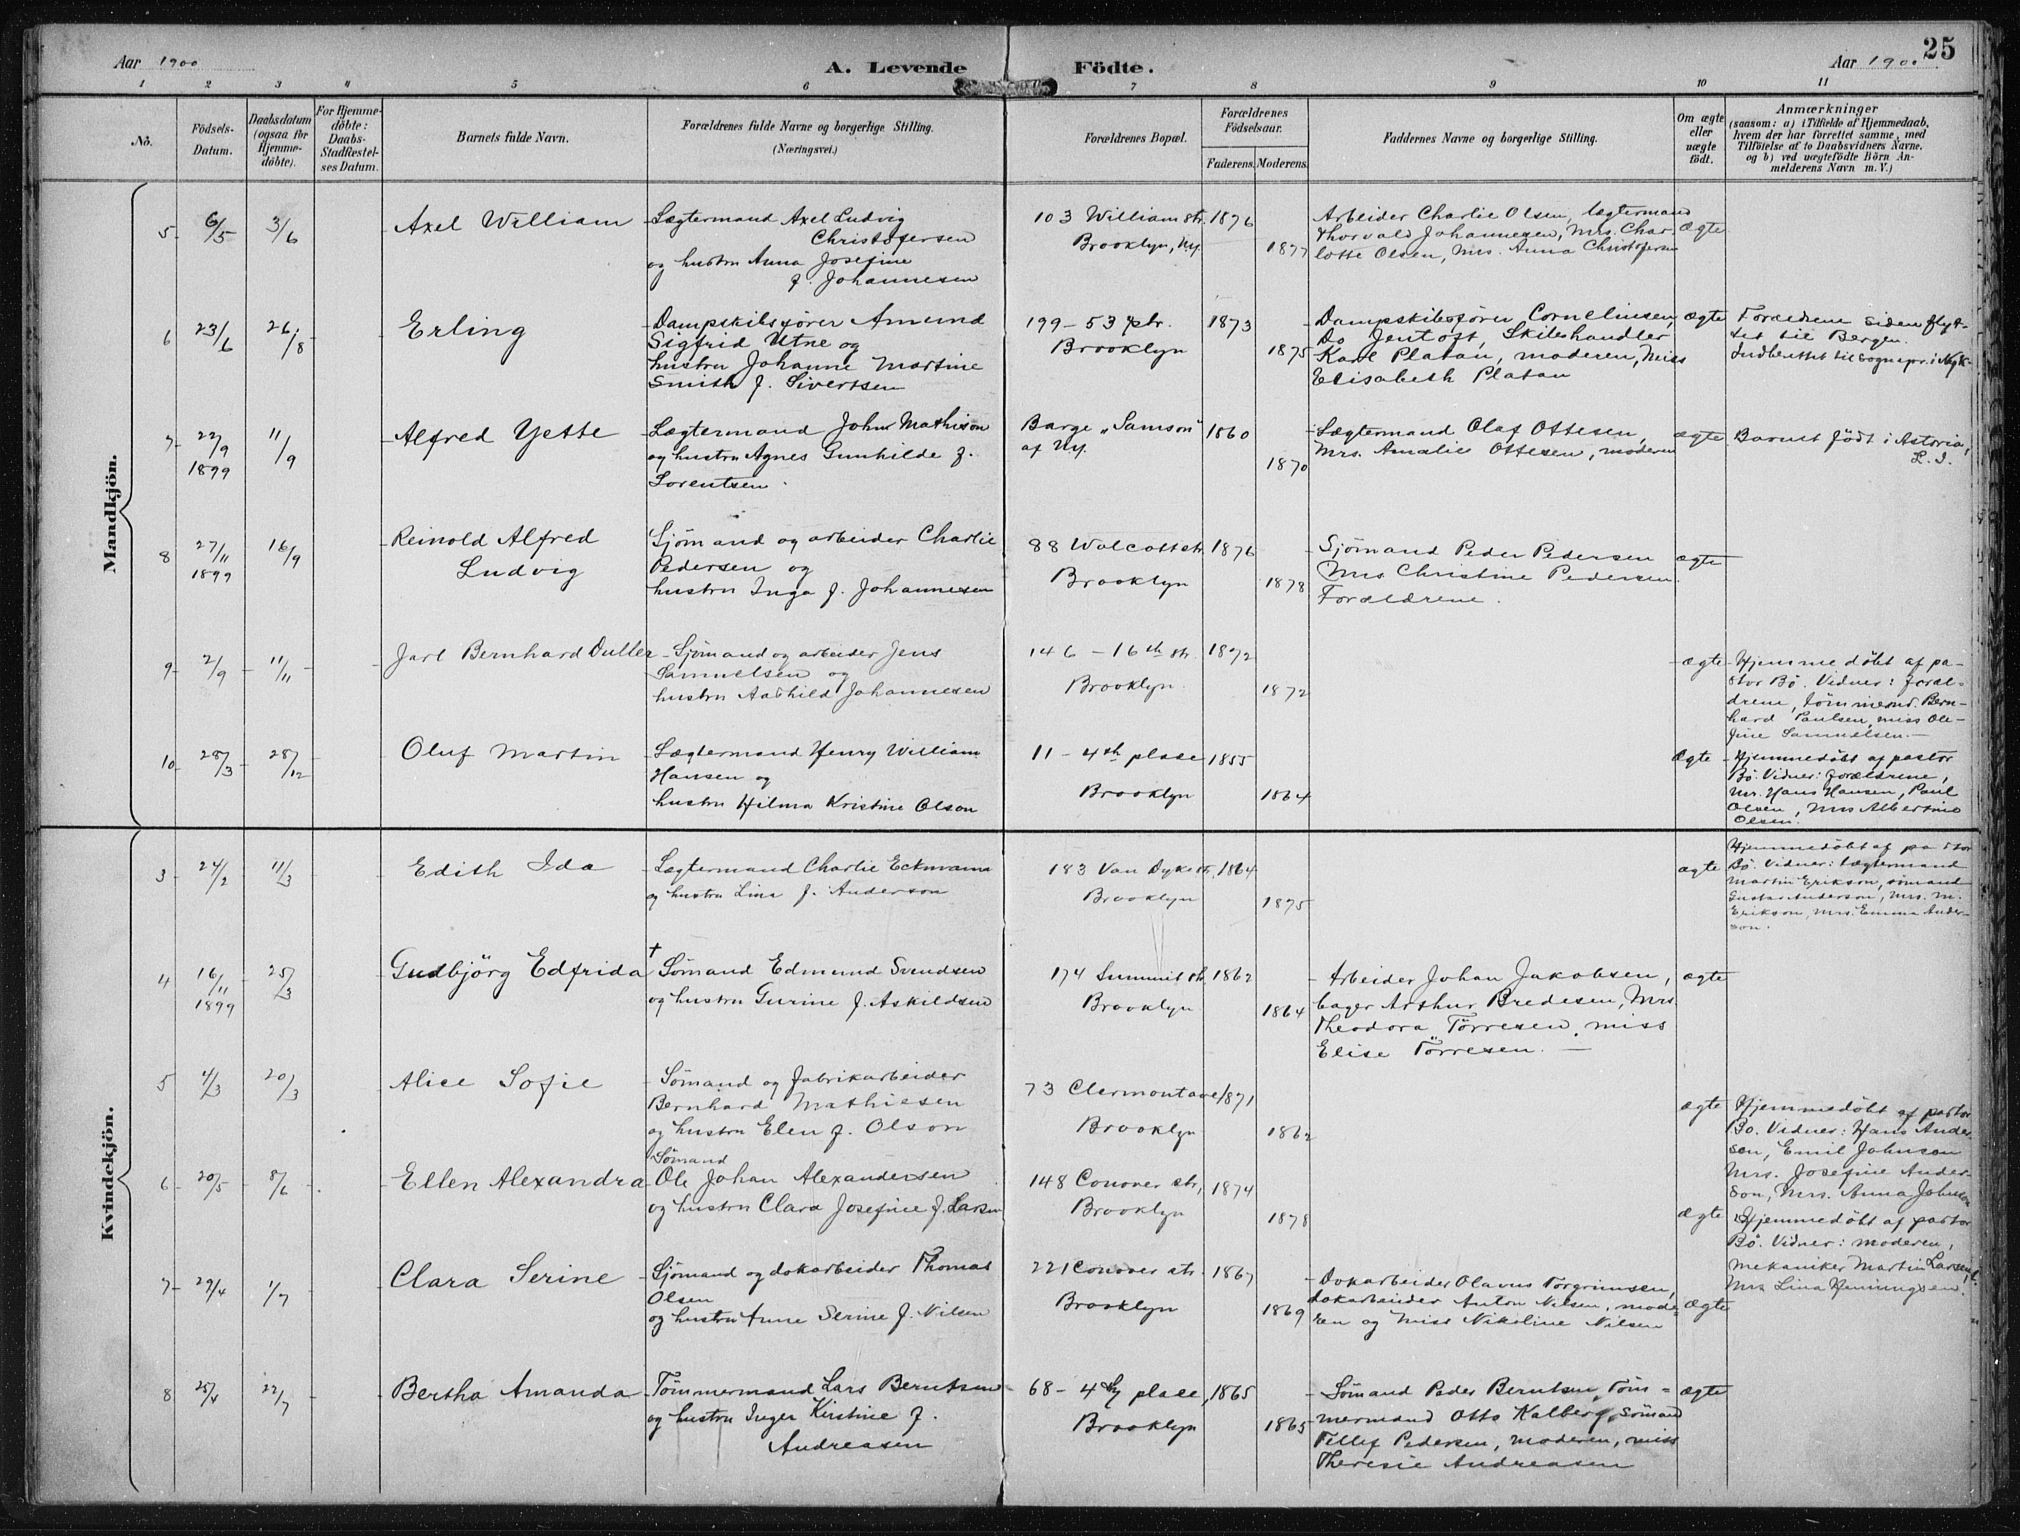 25
Aar 1900
A. Levende Födte.
Aar 1900
1 2 3 4 5 6 7 8 9 10 11
No.
Födsels-
Datum.
Daabsdatum
(ogsaa for
Hjemme-
döbte).
For Hjemme-
döbte:
Daabs-
Stadfæstel-
ses Datum.
Barnets fulde Navn.
Forældrenes fulde Navne og borgerlige Stilling.
(Næringsvei.)
Forældrenes Bopæl.
Forældrenes
Födselsaar.
Faderens. Moderens.
Faddernes Navne og borgerlige Stilling.
Om ægte
eller
uægte
födt.
Anmærkninger
(saasom: a) i Tilfælde af Hjemmedaab,
hvem der har forrettet samme, med
Tilföielse af to Daabsvidners Navne,
og b) ved uægtefödte Börn An-
melderens Navn m. V.)
Mandkjön.
5 6/5 3/6 Axel William
Lægtermand Axel Ludvig
Christofersen
og hustru Anna Josefine
f. Johannesen
103 William str.
Brooklyn, Ny.
1876
1877
Arbeider Charlie Olsen, lægtermand
Thorvald Johannesen, Mrs. Char-
lotte Olsen, Mrs. Anna Christofersen
ægte
6 23/6 26/8 Erling
Dampskibsfører Amund
Sigfrid Utne og
hustru Johanne Martine
Smith f. Sivertsen
199 - 53 str.
Brooklyn
1873
1875
Dampskibsfører Corneliusen,
Do Jentoft, Skibshandler
Karl Platou, moderen, Miss
Elisabeth Platou
ægte
Forældrene siden flyt-
tet til Bergen.
Indberettet til sognepr. i Nyk-
7 22/9 1899 11/9 Alfred Yette
Lægtermand John Mathison
og hustru Agnes Gunhilde f.
Lorentsen.
Barge "Samson"
af Ny.
1860
1870
Lægtermand Olaf Ottesen,
Mrs. Amalie Ottesen, moderen
ægte
Barnet født i Astoria,
L. I.
8 27/11 1899 16/9 Reinold Alfred
Ludvig
Sjømand og arbeider Charlie
Pedersen og
hustru Inga f. Johannesen
88 Walcott str
Brooklyn
1876
1878
Sjømand Peder Pedersen
Mrs Christine Pedersen
Forældrene.
ægte
9 2/9 11/11 Jarl Bernhard Duller
Sjømand og arbeider Jens
Samuelsen og
hustru Aashild Johannesen
146 - 16th str.
Brooklyn.
1872
1872
ægte
Hjemmedøbt af pa-
stor Bø. Vidner: foræl-
drene, tømmermd. Bern-
hard Paulsen, miss Ole-
fine Samuelsen.
10 28/3 28/12 Oluf Martin
Lægtermand Henry William
Hansen og
hustru Hilma Kristine Olson
11 - 4th place
Brooklyn
1855
1864
Ægte
Hjemmedøbt af pastor
Bø. Vidner: Forældrene,
Mr. Hans Hansen, Paul
Olsen, Mrs Albertine
Olsen.
Kvindekjön.
3 24/2 11/3 Edith Ida
Lægtermand Charlie Eckmann
og hustru Lina f. Anderson
183 Van Dyke st.
Brooklyn
1864
1875
ægte
Hjemmedøbt af pastor
Bø. Vidner: lægtermand
Martin Erikson, sømand
Gustav Anderson, Mrs. M.
Erikson, Mrs. Emma Ander-
son.
4 16/11 1899 25/3 Gudbjörg Edfrida †
Sømand Edmund Svendsen
og hustru Gurine f. Askildsen
174 Summit st.
Brooklyn
1862
1864
Arbeider Johan Jakobsen,
bager Arthur Bredesen, Mrs.
Theodora Tørresen, miss
Elise Tørresen.
ægte
5 1/3 20/3 Alice Sofie
Sømand og fabrikarbeider
Bernhard Mathiesen
og hustru Elen f. Olson
73 Clermont ave
Brooklyn
1871
1862
ægte
Hjemmedøbt af pastor
Bø. Vidner: Hans Ander-
sen, Emil Johnsen
Mrs. Josefine Ander-
son, Mrs. Anna Johnson
6 20/5 8/6 Ellen Alexandra
Sømand
Ole Johan Alexandersen
og hustru Clara Josefine f. Larsen
148 Conover str,
Brooklyn
1874
1878
ægte
Hjemmedøbt af pastor
Bø. Vidner: moderen,
mekaniker Martin Larsen,
Mrs Lina Henningsen.
7 29/4 1/7 Clara Serine
Sjømand og dokarbeider Thomas
Olsen
og hustru Anne Serine f. Nilsen
221 Conover str.
Brooklyn
1867
1869
Dokarbeider Olavus Torgrimsen,
dokarbeider Anton Nilsen, mode-
ren og Miss Nikoline Nilsen
ægte
8 25/4 22/7 Bertha Amanda
Tømmermand Lars Berntsen
og hustru Inger Kirstine f.
Andreasen
68 - 4 place,
Brooklyn
1865
1865
Sømand Peder Berntsen, Tøm-
mermand Otto Kalberg, sømand
Tellef Pedersen, moderen, miss
Theresie Andreasen
ægte